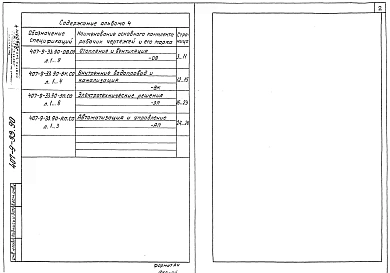 Содержание альбома 4
Обозначение спецификаций
Наименование основного комплекта рабочих чертежей и его марка
Страница
407-9-33.90-ОВ.СО л.1...9
Отопление и вентиляция -ОВ
3...11
407-9-33.90-ВК.СО л.1...4
Внутренние водопровод и канализация -ВК
12...15
407-9-33.90-ЭЛ.СО л.1...8
Электротехнические решения -ЭЛ
16...23
407-9-33.90-АП.СО л.1...3
Автоматизация и управление -АП
24...26
Альбом 4
407-9-33.90
2
Формат А4